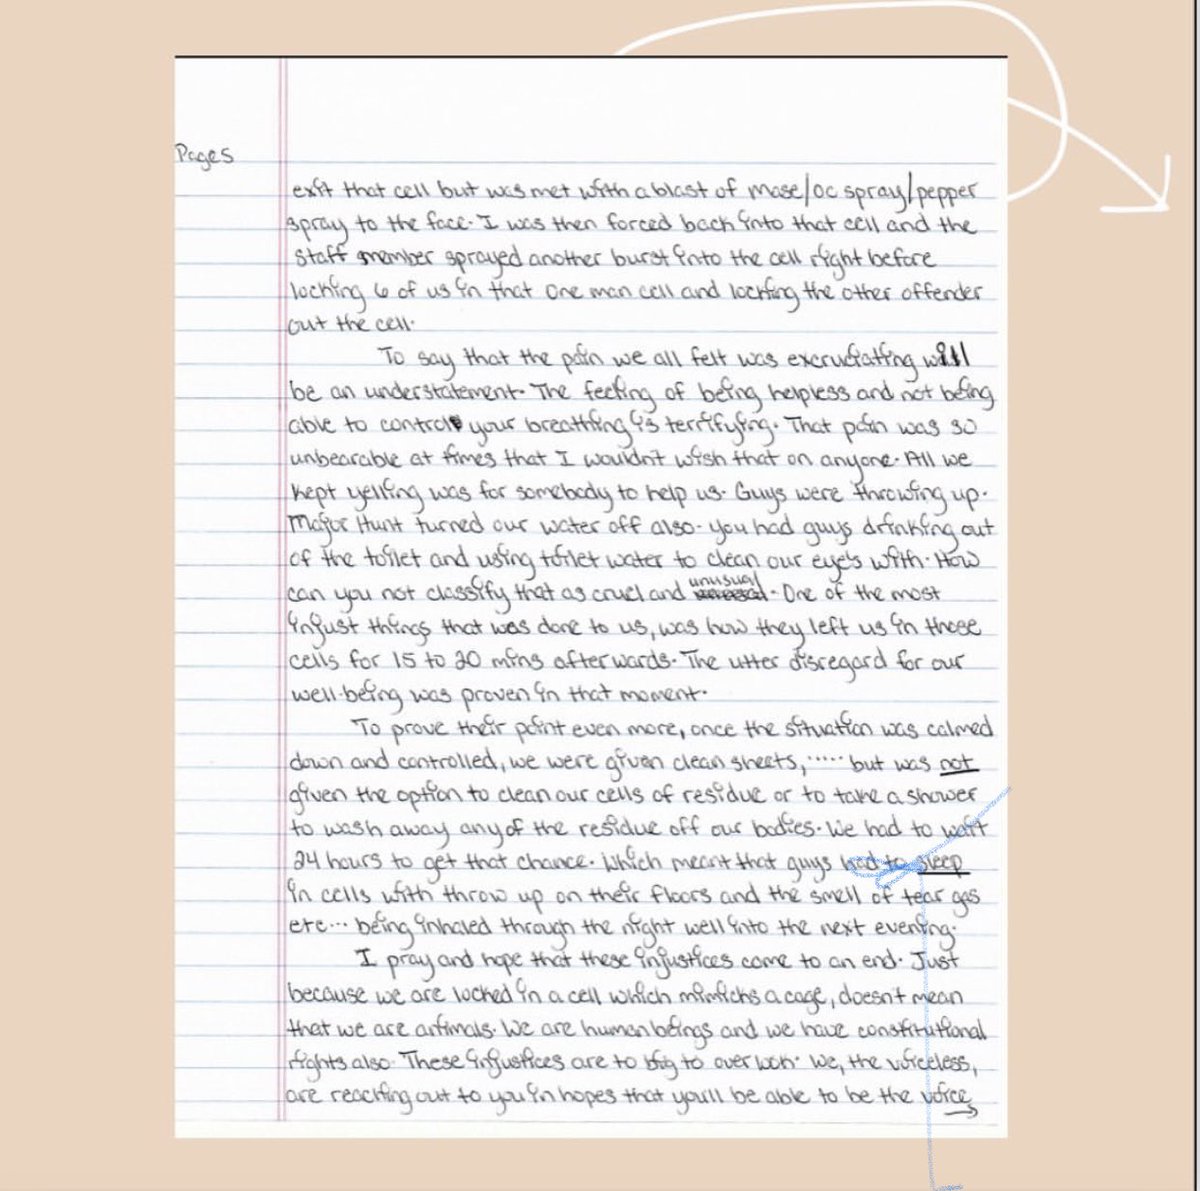 Pages
exit that cell but was met with a blast of mase/oc spray/pepper
spray to the face. I was then forced back into that cell and the
staff member sprayed another burst into the cell right before
locking 6 of us in that one man cell and locking the other offender
out the cell.
To say that the pain we all felt was excruciating will
be an understatement. The feeling of being helpless and not being
able to control your breathing is terrifying. That pain was so
unbearable at times that I wouldn't wish that on anyone. All we
kept yelling was for somebody to help us. Guys were throwing up.
Major Hunt turned our water off also. you had guys drinking out
of the toilet and using toilet water to clean our eye's with. How
can you not classify that as cruel and unusual. One of the most
injust things that was done to us, was how they left us in those
cells for 15 to 20 mins afterwards. The utter disregard for our
well-being was proven in that moment.
To prove their point even more, once the situation was calmed
down and controlled, we were given clean sheets, ..... but was not
given the option to clean our cells of residue or to take a shower
to wash away any of the residue off our bodies. We had to wait
24 hours to get that chance. Which meant that guys had to sleep
in cells with throw up on their floors and the smell of tear gas
etc... being inhaled through the night well into the next evening.
I pray and hope that these injustices come to an end. Just
because we are locked in a cell which mimicks a cage, doesn't mean
that we are animals. We are human beings and we have constitutional
rights also. These injustices are to big to over look. We, the voiceless,
are reaching out to you in hopes that you'll be able to be the voice